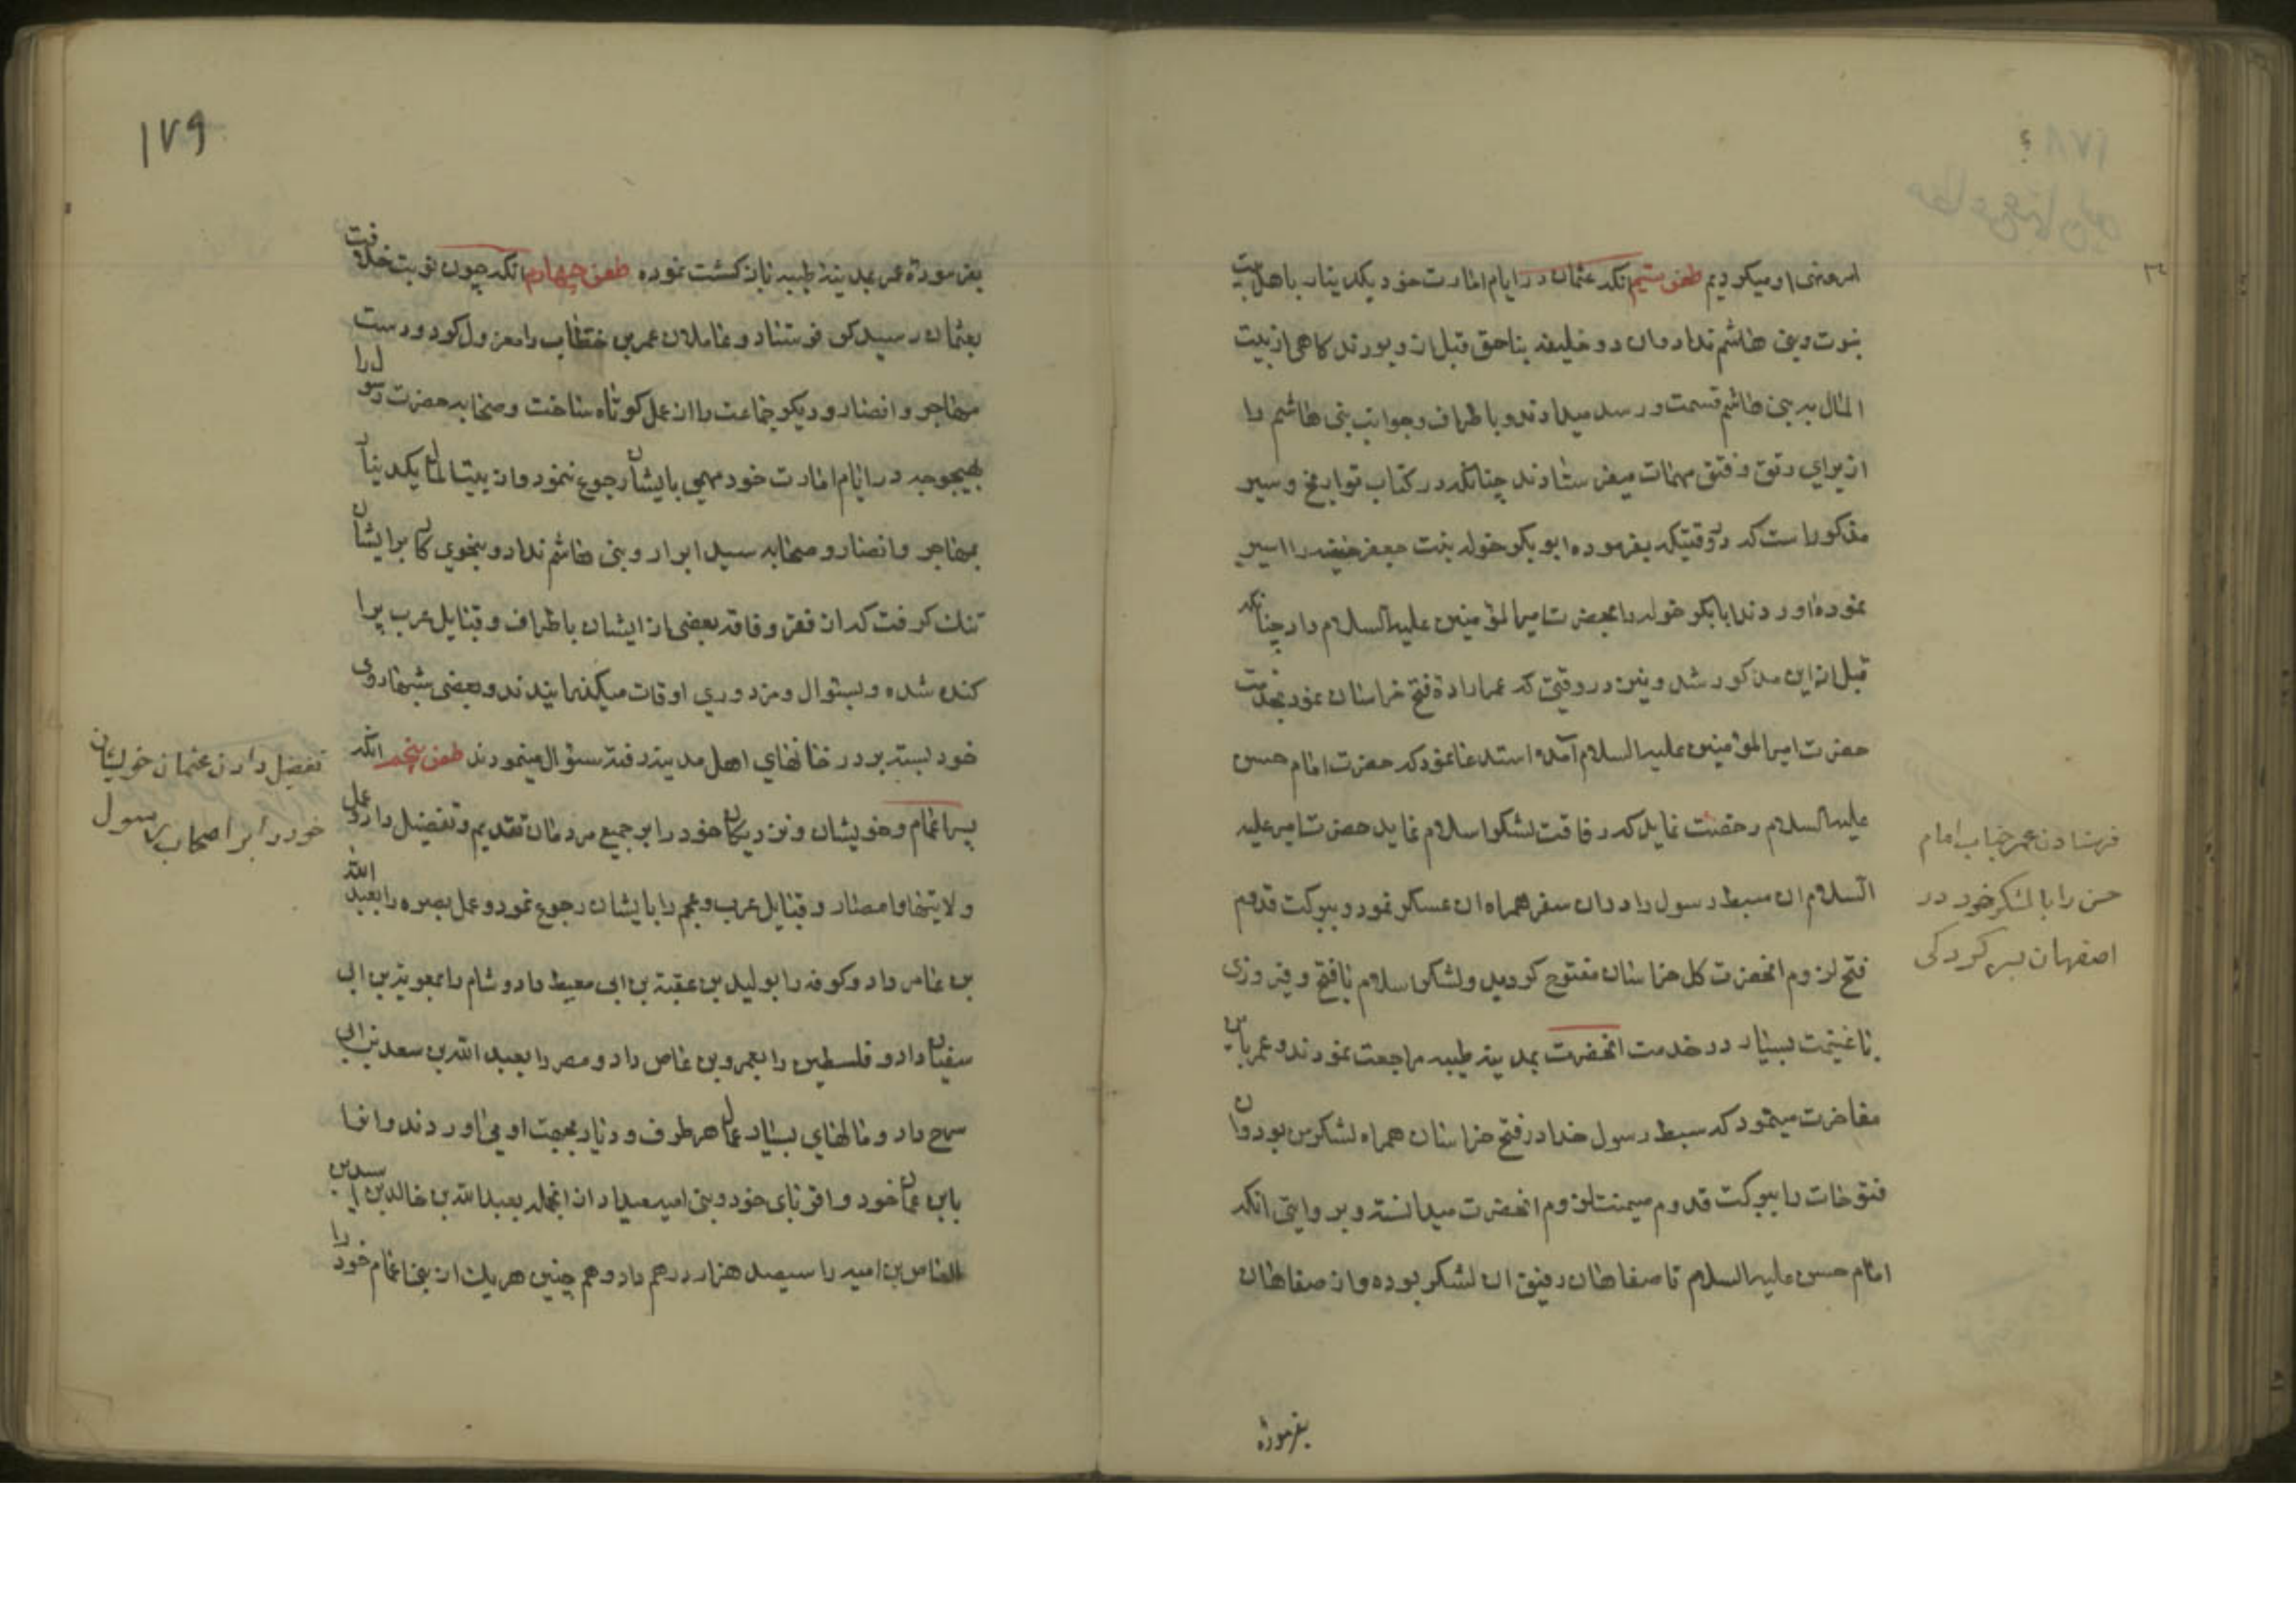 امر و نهی او میکردیم طعن سیم انکه عثمان در ایام امارت خود یکدینار باهل بیت
نبوت و بنی هاشم نداد و ان دو خلیفه بناحق قبل از و بودند کاهی از بیت
المال به بنی هاشم قسمت و رسد میدادند و باطراف و جوانب بنی هاشم را
از برای رتق و فتق مهمات میفرستادند چنانکه در کتاب تواریخ و سیر
مذکور است که در وقتیکه بفرموده ابوبکر خوله بنت جعفر حنفیه را اسیر
نموده اوردند ابابکر خوله را بحضرت امیرالمؤمنین علیه السلام داد چنانکه
قبل از این مذکور شد و نیز در وقتی که عمر ارادة فتح خراسان نمود بخدمت
حضرت امیرالمؤمنین علیه السلام آمده استدعا نمود که حضرت امام حسن
علیه السلام رخصت نماید که رفاقت لشکر اسلام نماید حضرت امیر علیه
السلام ان سبط رسول را در ان سفر همراه ان عسکر نمود و ببرکت قدوم
فتح لزوم انحضرت کل خراسان مفتوح کردید و لشکر اسلام با فتح و فیروزی
با غنیمت بسیار در خدمت انحضرت بمدینه طیبه مراجعت نمودند و عمر باین
مفاخرت مینمود که سبط رسول خدا در فتح خراسان همراه لشکر من بود و ان
فتوحات را ببرکت قدوم میمنت لزوم انحضرت میدانست و بروایتی انکه
امام حسن علیه السلام تا صفاهان رفیق ان لشکر بوده و از صفاهان
بفرمودۀ
فرستادن عمر جناب امام
حسن را با لشکر خود در
اصفهان بسرکردکی
۱۷۹
بفرمودۀ عمر بمدینۀ طیبه باز کشت نموده طعن چهارم انکه چون نوبت خلافت
بعثمان رسید کس فرستاد و عاملان عمر بن خطاب را معزول کرد و دست
مهاجر و انصار و دیکر جماعت را از عمل کوتاه ساخت و صحابه حضرت رسول را
بهیچوجه در ایام امارت خود مهمی بایشان رجوع ننمود و از بیت المال یکدینار
بمهاجر و انصار و صحابه سید ابرار و بنی هاشم نداد و بنحوی کار بر ایشان
تنک کرفت که از فقر و فاقه بعضی از ایشان باطراف و قبایل عرب پرا
کنده شده و بسئوال و مزدوری اوقات میکذرانیدند و بعضی شبها روی
خود بسته بر در خانهای اهل مدینه رفته سئوال مینمودند طعن پنجم انکه
پسر اعمام و خویشان و نزدیکان خود را بر جمیع مردمان تقدیم و تفضیل داد و عمل
ولایتها و امصار و قبایل عرب و عجم را بایشان رجوع نمود و عمل بصره را بعبد الله
بن عامر داد و کوفه را بولید بن عقبة بن ابی معیط داد و شام را بمعویة بن ابی
سفیان داد و فلسطین را بعمرو بن عاص داد و مصر را بعبد الله بن سعد بن ابی
سرح داد و مالهای بسیار عمال هر طرف و دیار بجهت او می اوردند و انها
بابن عمان خود و اقربای خود و بنی امیه میداد از انجمله بعبد الله بن خالد بن اسید بن
العاص بن امیه را سیصد هزار درهم داد و هم چنین هر یک از بنی اعمام خود را
تفضیل دادن عثمان خویشان
خود را بر اصحاب رسول